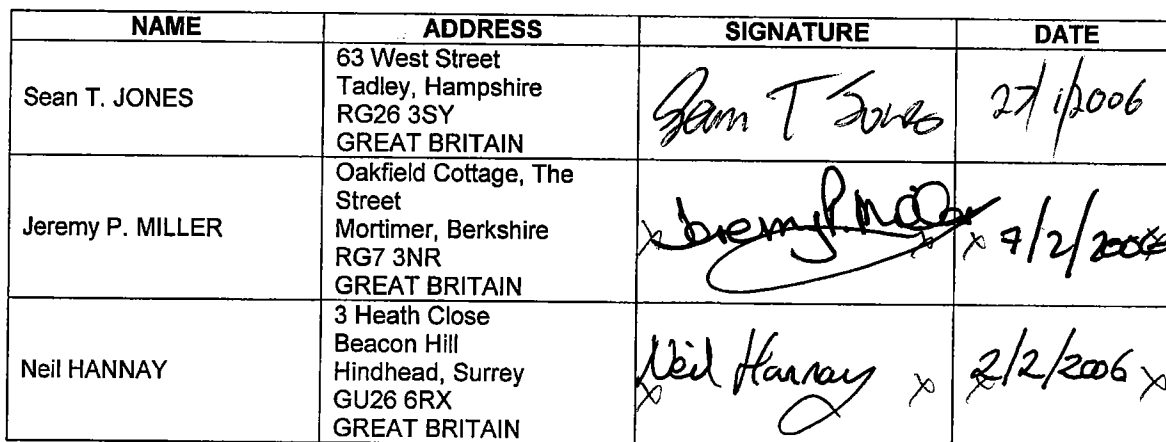 NAME ADDRESS SIGNATURE DATE
Sean T. JONES
63 West Street
Tadley, Hampshire
RG26 3SY
GREAT BRITAIN
Sean T Jones
27/1/2006
Jeremy P. MILLER
Oakfield Cottage, The
Street
Mortimer, Berkshire
RG7 3NR
GREAT BRITAIN
x Jeremy P. Miller x
x 7/2/2006
Neil HANNAY
3 Heath Close
Beacon Hill
Hindhead, Surrey
GU26 6RX
GREAT BRITAIN
x Neil Hannay x
x 2/2/2006 x